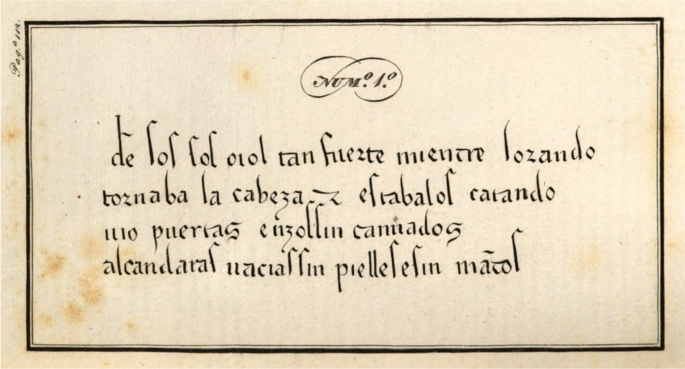 Pag.ª 112.
NUM.º 1.º
de los sos oios tan fuerte mientre lorando
tornaba la cabeza ⁊ estabalos catando
uio puertas e uzossin cannados
alcandaras uaciassin pielles esin mãtos